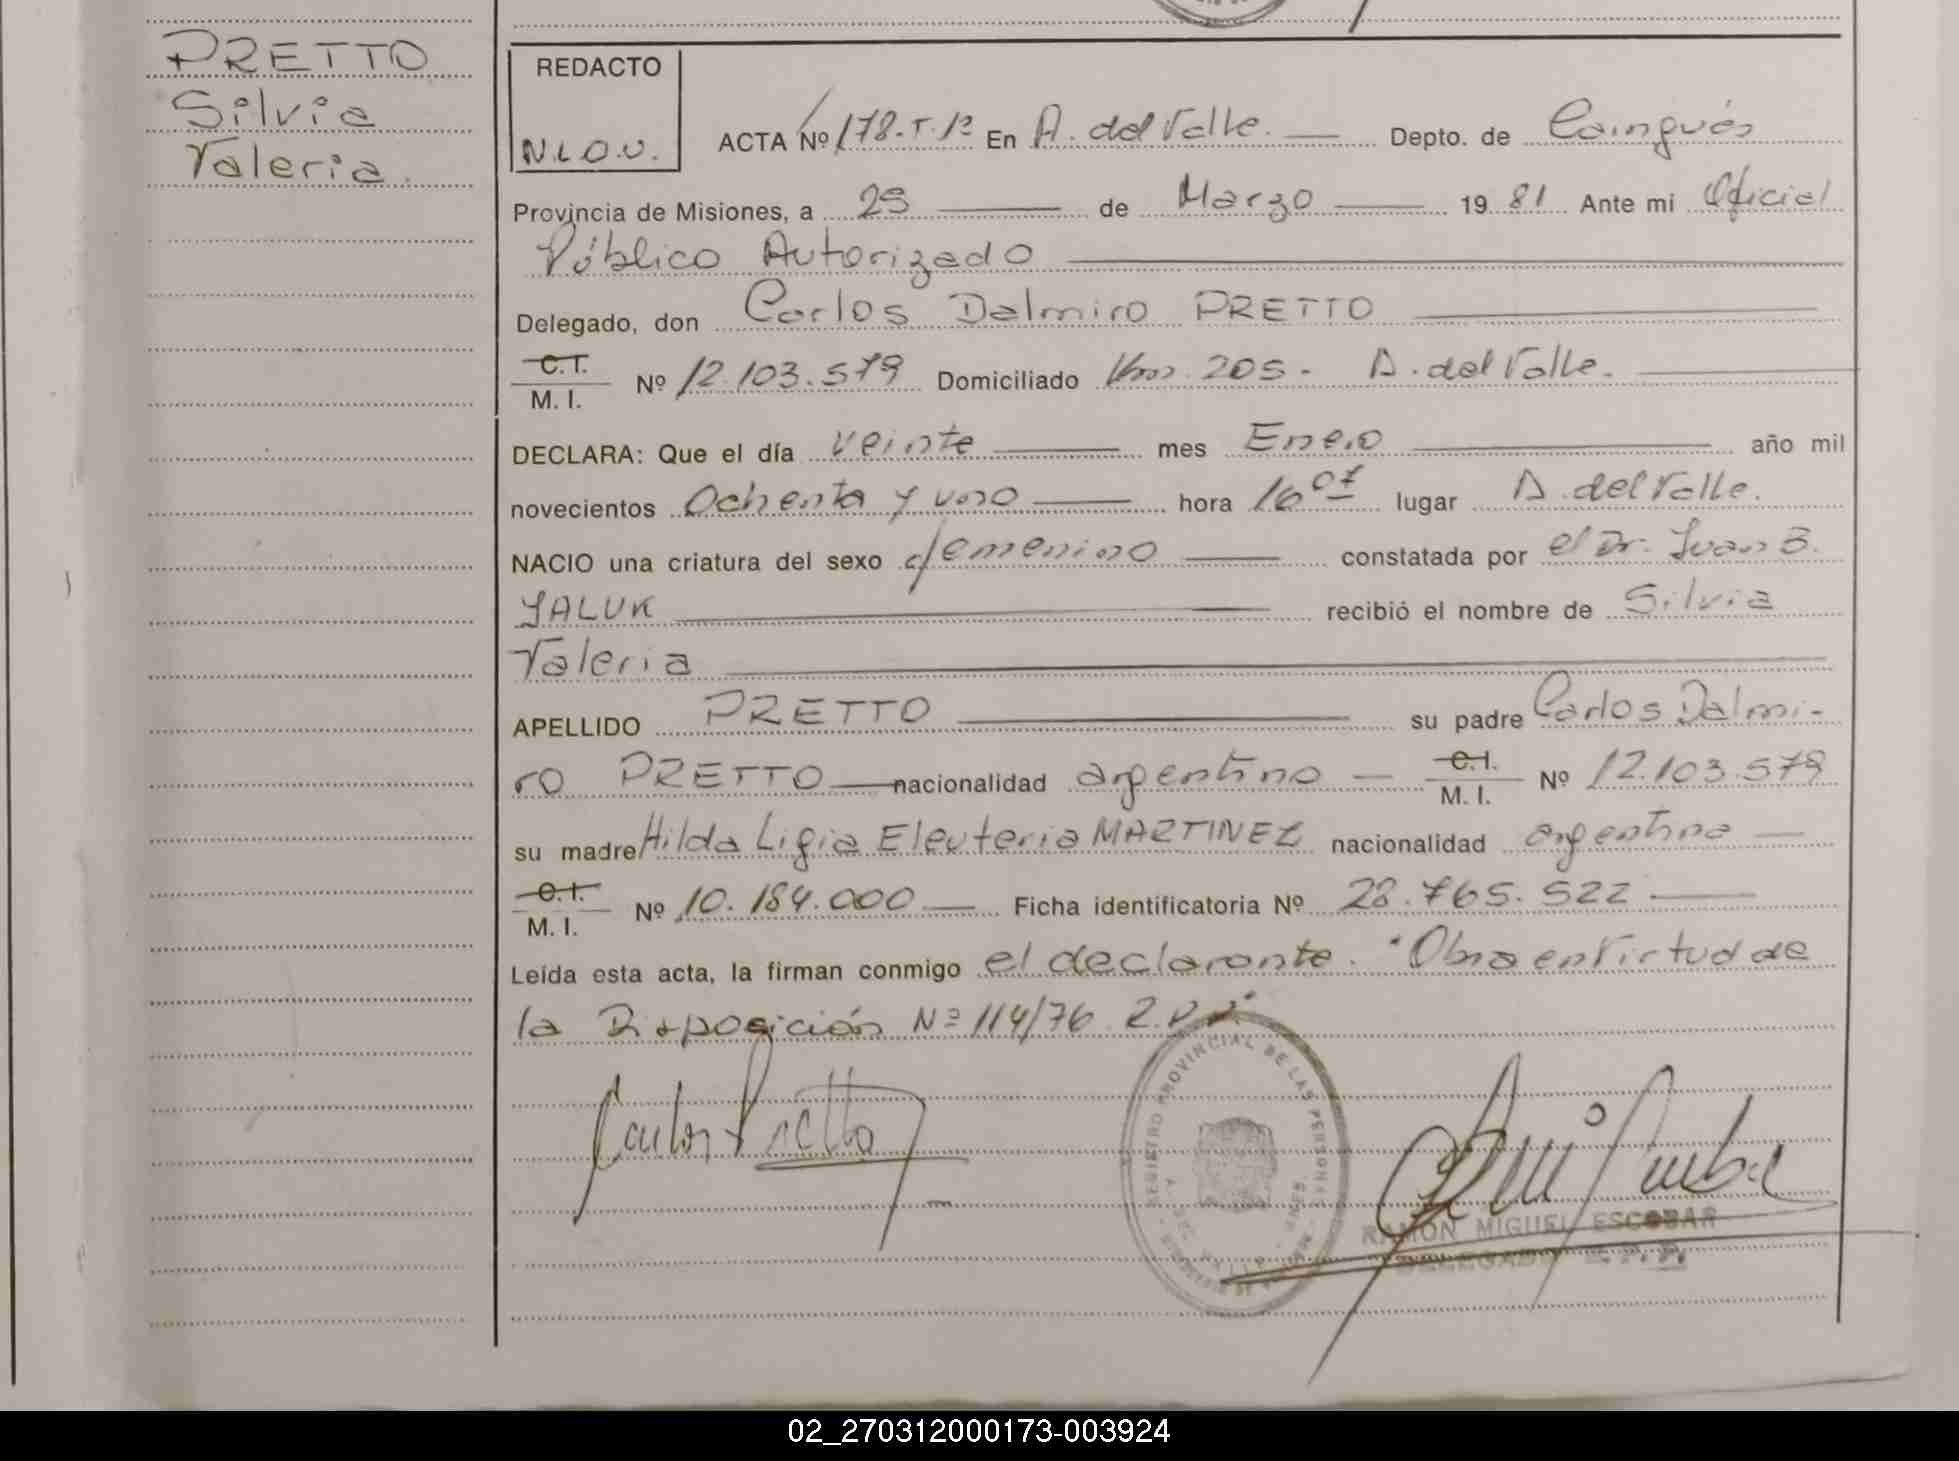 PRETTO
Silvia
Valeria.
REDACTO
N.L.O.U.
ACTA Nº 178.T.1º En A. del Valle. Depto. de Cainguás
Provincia de Misiones, a 25 de Marzo 19 81 Ante mi Oficial
Público Autorizado
Delegado, don Carlos Dalmiro PRETTO
C.I.
M. I. Nº 12.103.579 Domiciliado Km. 205. A. del Valle.
DECLARA: Que el día veinte mes Enero año mil
novecientos Ochenta y uno hora 16 07 lugar A. del Valle.
NACIO una criatura del sexo femenino constatada por el Dr. Juan B.
YALUK recibió el nombre de Silvia
Valeria
APELLIDO PRETTO su padre Carlos Dalmi-
ro PRETTO nacionalidad argentino C.I.
M. I. Nº 12.103.579
su madre Hilda Ligia Eleuteria MARTINEZ nacionalidad argentina
C.I.
M. I. Nº 10.184.000 Ficha identificatoria Nº 28.765.522
Leída esta acta, la firman conmigo el declarante. "Obra en Virtud de
la Disposición Nº 114/76
Carlos Pretto
REGISTRO PROVINCIAL DE LAS PERSONAS
RAMON MIGUEL ESCOBAR
DELEGADO R. P. P.
02_270312000173-003924